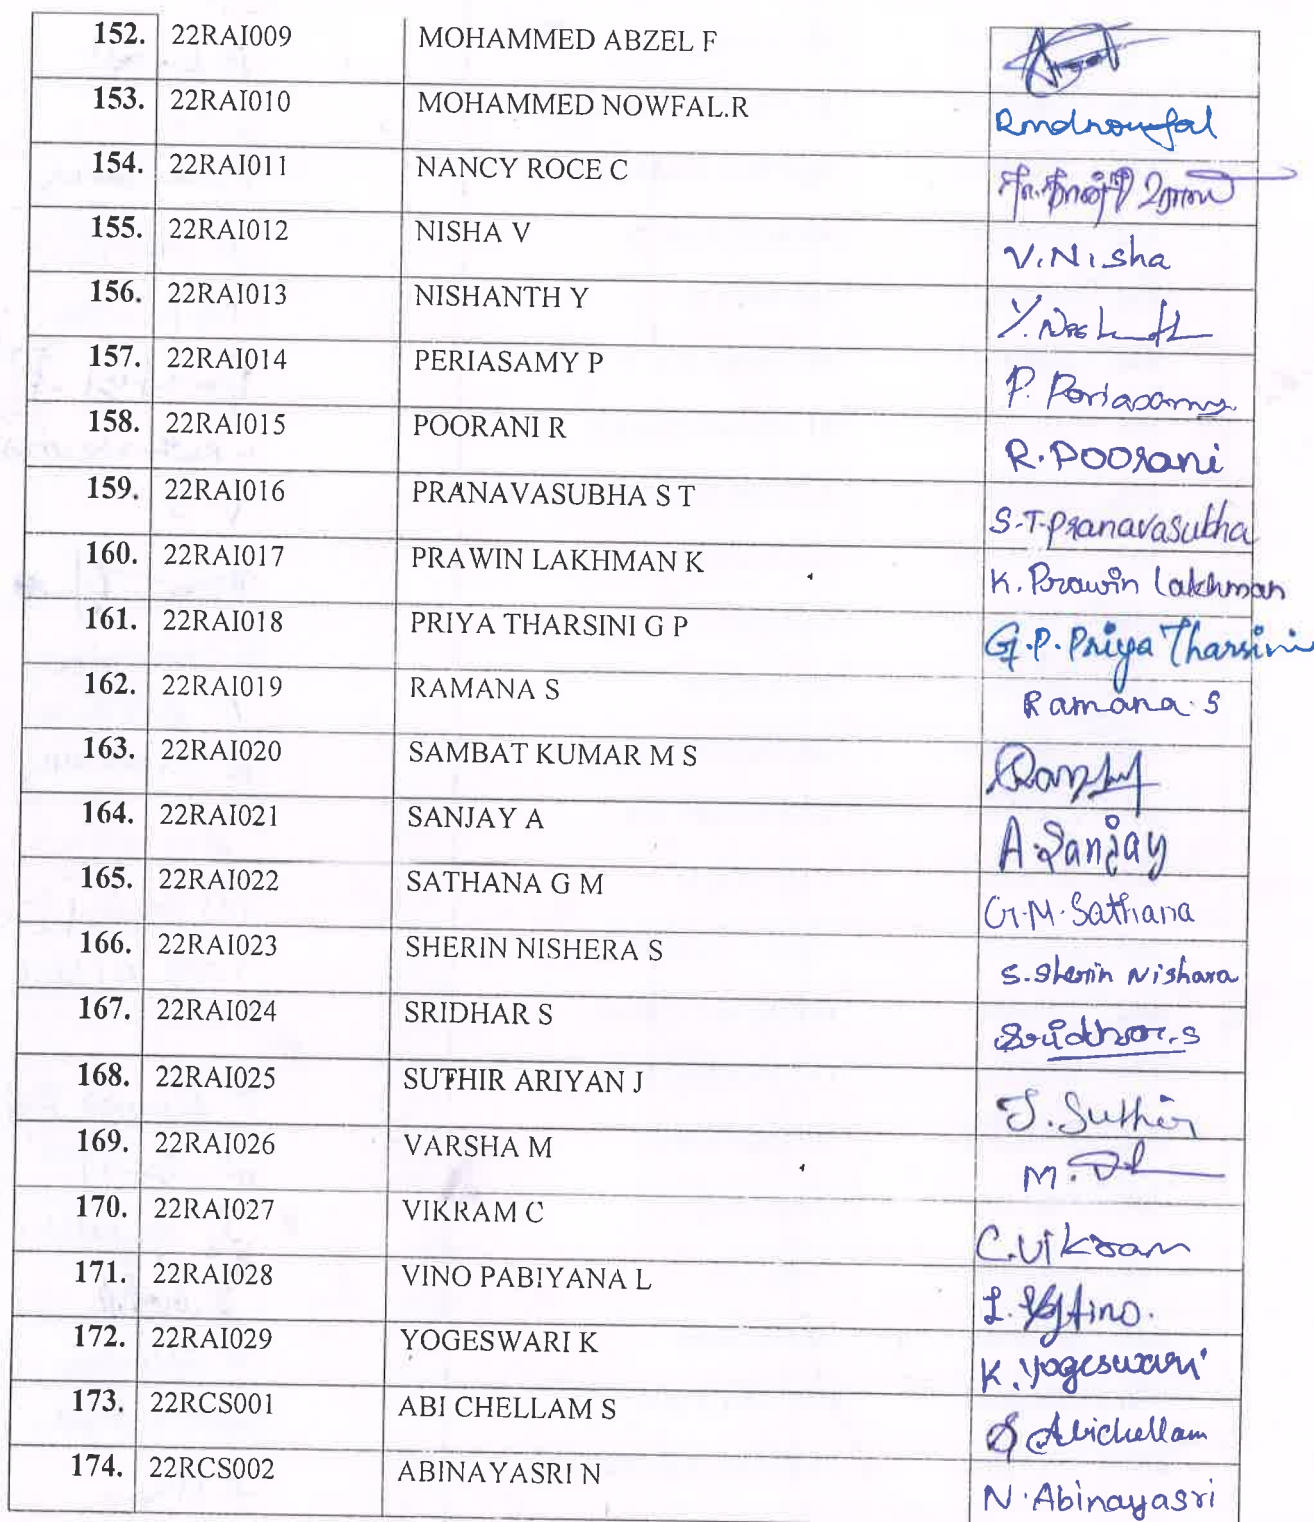 152. 22RAI009 MOHAMMED ABZEL F
153. 22RAI010 MOHAMMED NOWFAL.R Rmdnowfal
154. 22RAI011 NANCY ROCE C
155. 22RAI012 NISHA V V.Nisha
156. 22RAI013 NISHANTH Y Y.
157. 22RAI014 PERIASAMY P P. Periasamy
158. 22RAI015 POORANI R R.Poorani
159. 22RAI016 PRANAVASUBHA S T S.T.Pranavasubha
160. 22RAI017 PRAWIN LAKHMAN K K. Prawin Lakhman
161. 22RAI018 PRIYA THARSINI G P G.P.Priya Tharsini
162. 22RAI019 RAMANA S Ramana.S
163. 22RAI020 SAMBAT KUMAR M S
164. 22RAI021 SANJAY A A.Sanjay
165. 22RAI022 SATHANA G M G.M.Sathana
166. 22RAI023 SHERIN NISHERA S S.Sherin Nishara
167. 22RAI024 SRIDHAR S Sridhar.S
168. 22RAI025 SUTHIR ARIYAN J J.Suthir
169. 22RAI026 VARSHA M M.
170. 22RAI027 VIKRAM C C.Vikram
171. 22RAI028 VINO PABIYANA L L.
172. 22RAI029 YOGESWARI K K.Yogeswari
173. 22RCS001 ABI CHELLAM S S Abichellam
174. 22RCS002 ABINAYASRI N N.Abinayasri